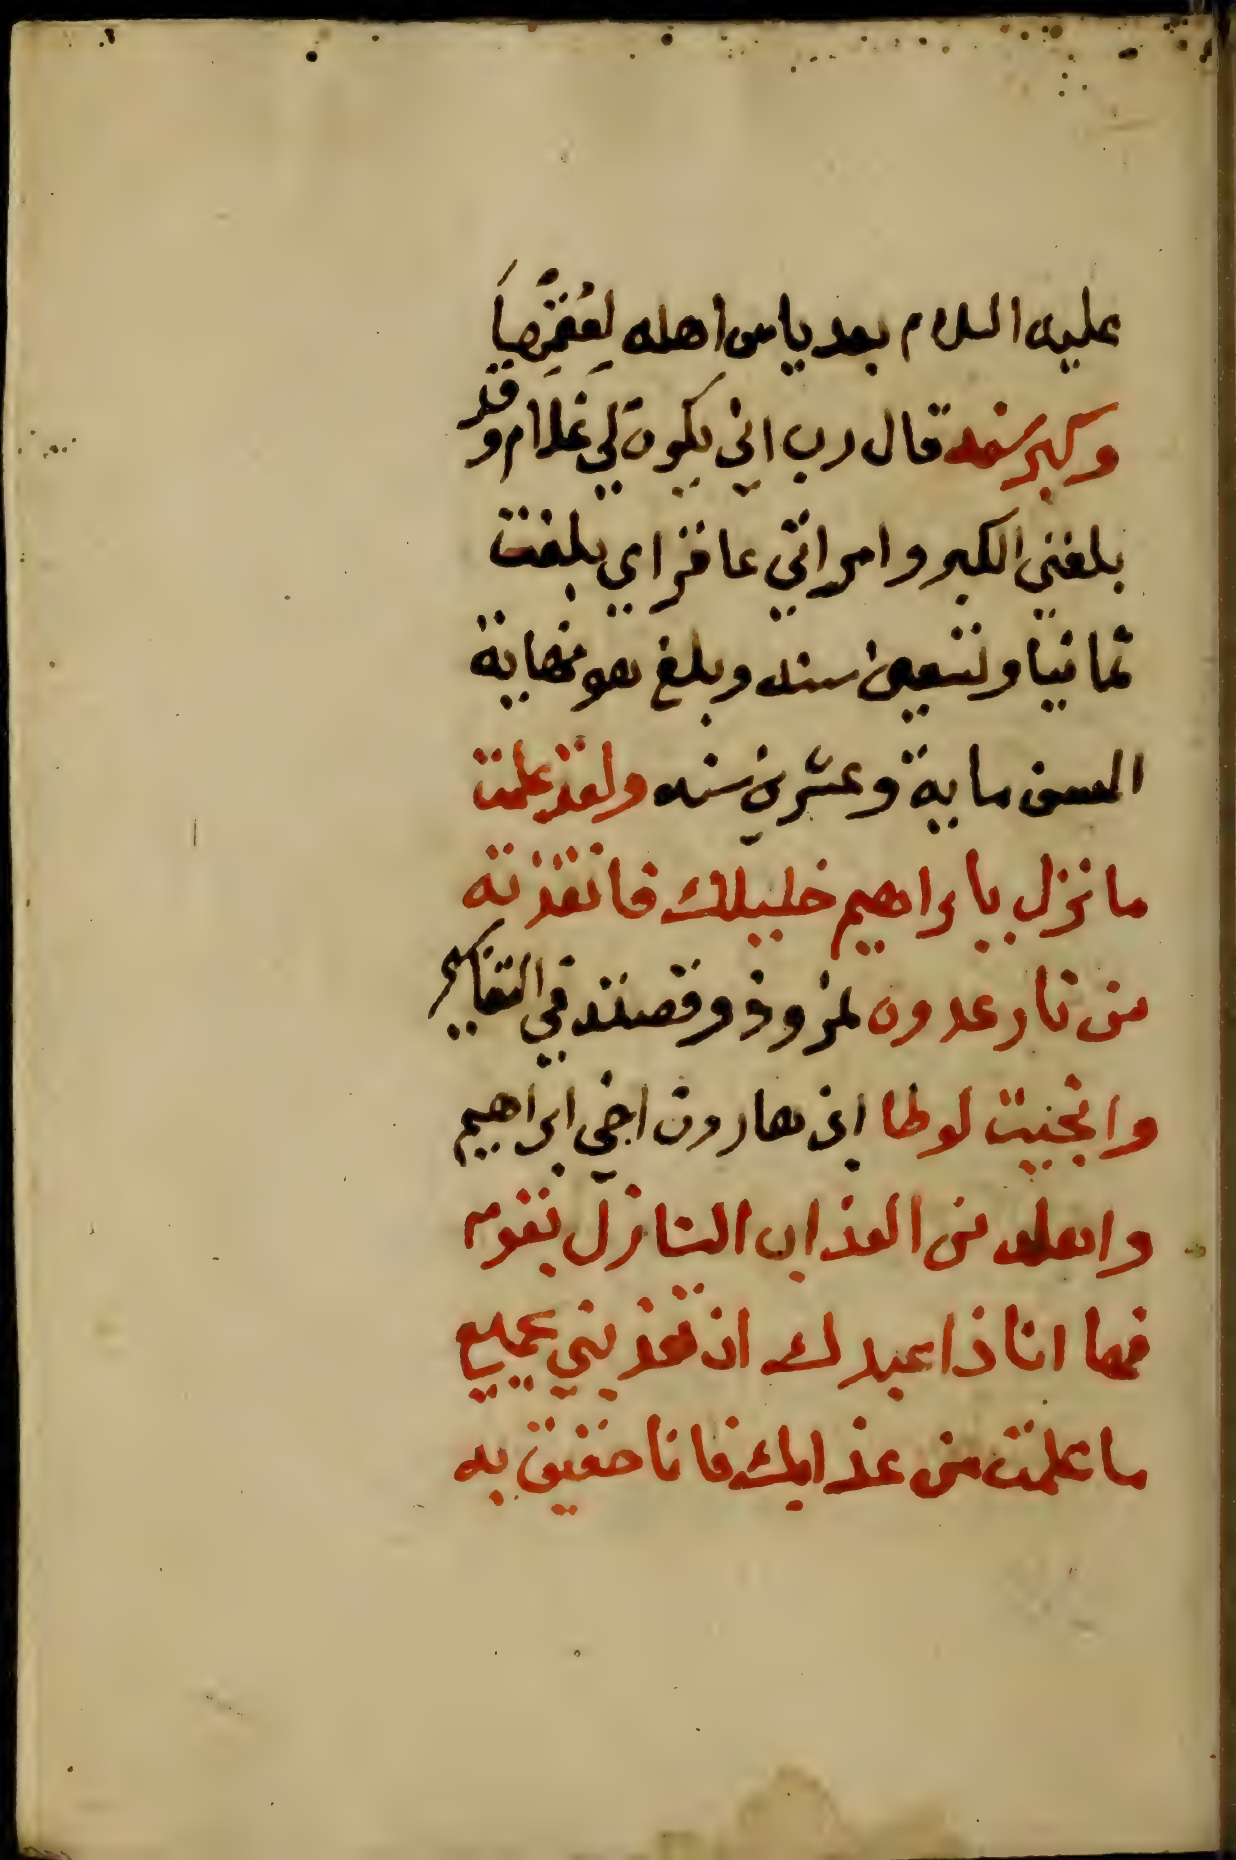 عليه السلام بعد ياس اهله لعقرها
وكبر سنه قال رب اني يكون لي غلام وقد
بلغني الكبر وامراتي عاقر اي بلغت
ثمانيا وتسعين سنه وبلغ هو نهاية
السن ماية وعشرين سنه ولقد علمت
ما نزل بابراهيم خليلك فانقذته
من نار عدوه نمروذ وقصته في التفاسير
وانجيت لوطا ابن هارون اخي ابراهيم
واهله من العذاب النازل بقومه
فها انا ذا عبدك ان تعذبني بجميع
ما علمت من عذابك فانا حقيق به